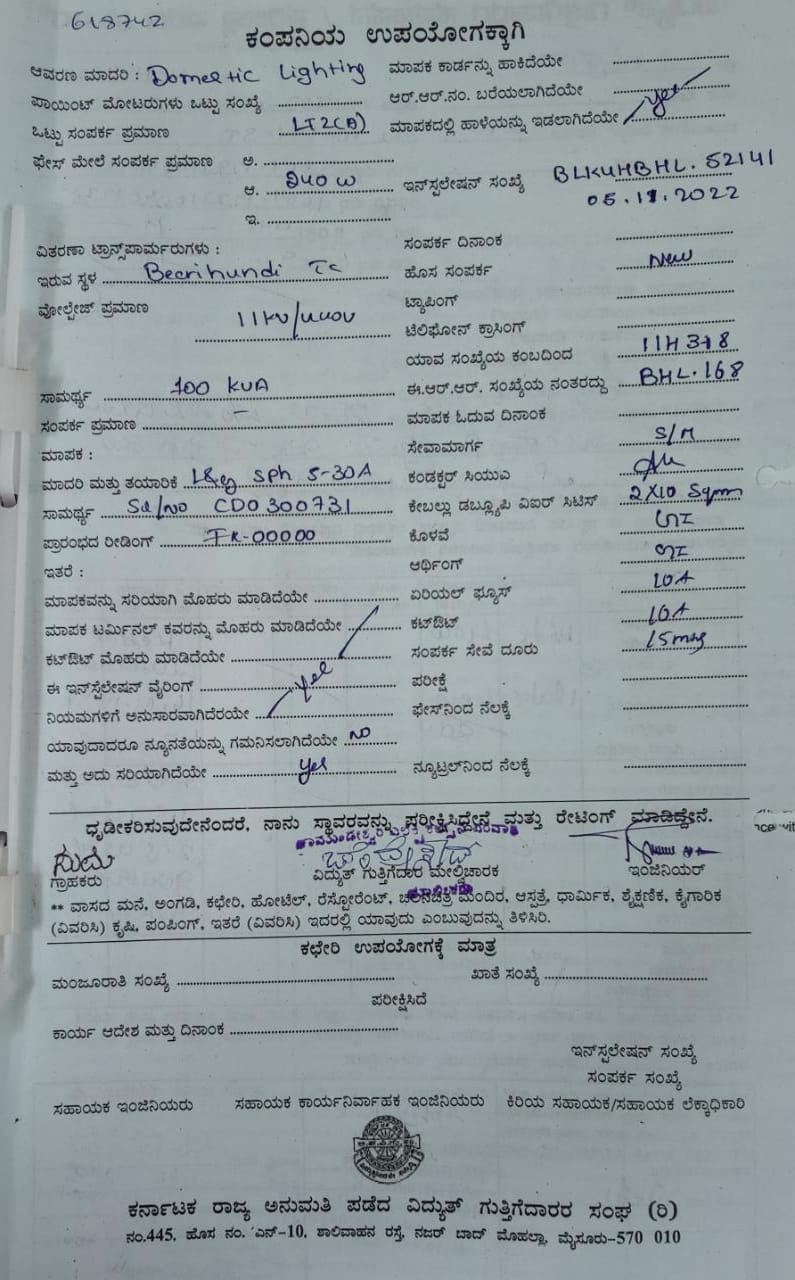 618742
ಕಂಪನಿಯ ಉಪಯೋಗಕ್ಕಾಗಿ
ಆವರಣ ಮಾದರಿ : Domestic Lighting ಮಾಪಕ ಕಾರ್ಡನ್ನು ಹಾಕಿದೆಯೇ
ಪಾಯಿಂಟ್ ಮೋಟರುಗಳು ಒಟ್ಟು ಸಂಖ್ಯೆ ಆರ್.ಆರ್.ನಂ. ಬರೆಯಲಾಗಿದೆಯೇ
ಒಟ್ಟು ಸಂಪರ್ಕ ಪ್ರಮಾಣ LT2(A) ಮಾಪಕದಲ್ಲಿ ಹಾಳೆಯನ್ನು ಇಡಲಾಗಿದೆಯೇ yes
ಫೇಸ್ ಮೇಲೆ ಸಂಪರ್ಕ ಪ್ರಮಾಣ ಅ.
ಆ. 240 W ಇನ್‌ಸ್ಪಲೇಷನ್ ಸಂಖ್ಯೆ BLKUHBHL.52141
ಇ. 05.11.2022
ವಿತರಣಾ ಟ್ರಾನ್ಸ್‌ಪಾರ್ಮರುಗಳು : ಸಂಪರ್ಕ ದಿನಾಂಕ
ಇರುವ ಸ್ಥಳ Beerihundi Tc ಹೊಸ ಸಂಪರ್ಕ New
ವೋಲ್ಟೇಜ್ ಪ್ರಮಾಣ 11KV/440V ಟ್ಯಾಪಿಂಗ್
ಟೆಲಿಫೋನ್ ಕ್ರಾಸಿಂಗ್
ಯಾವ ಸಂಖ್ಯೆಯ ಕಂಬದಿಂದ
ಸಾಮರ್ಥ್ಯ 100 KVA ಈ.ಆರ್.ಆರ್. ಸಂಖ್ಯೆಯ ನಂತರದ್ದು BHL.168
ಸಂಪರ್ಕ ಪ್ರಮಾಣ – ಮಾಪಕ ಓದುವ ದಿನಾಂಕ
ಮಾಪಕ : ಸೇವಾಮಾರ್ಗ S/M
ಮಾದರಿ ಮತ್ತು ತಯಾರಿಕೆ L&G SPh 5-30A ಕಂಡಕ್ಟರ್ ಸಿಯುಎ
ಸಾಮರ್ಥ್ಯ Sl/no CD0300731 ಕೇಬಲ್ಲು ಡಬ್ಲ್ಯೂಪಿ ವಿಐರ್ ಸಿಟಿಸ್ 2X10 Sqmm
ಪ್ರಾರಂಭದ ರೀಡಿಂಗ್ FR-00000 ಕೊಳವೆ GI
ಇತರೆ : ಆರ್ಥಿಂಗ್ GI
ಮಾಪಕವನ್ನು ಸರಿಯಾಗಿ ಮೊಹರು ಮಾಡಿದೆಯೇ ಏರಿಯಲ್ ಫ್ಯೂಸ್ 10A
ಮಾಪಕ ಟರ್ಮಿನಲ್ ಕವರನ್ನು ಮೊಹರು ಮಾಡಿದೆಯೇ ಕಟ್‌ಔಟ್ 10A
ಕಟ್‌ಔಟ್ ಮೊಹರು ಮಾಡಿದೆಯೇ ಸಂಪರ್ಕ ಸೇವೆ ದೂರು 15mtrs
ಈ ಇನ್‌ಸ್ಪೆಲೇಷನ್ ವೈರಿಂಗ್ yes ಪರೀಕ್ಷೆ
ನಿಯಮಗಳಿಗೆ ಅನುಸಾರವಾಗಿದೆರಯೇ ಫೇಸ್‌ನಿಂದ ನೆಲಕ್ಕೆ
ಯಾವುದಾದರೂ ನ್ಯೂನತೆಯನ್ನು ಗಮನಿಸಲಾಗಿದೆಯೇ NO
ಮತ್ತು ಅದು ಸರಿಯಾಗಿದೆಯೇ yes ನ್ಯೂಟ್ರಲ್‌ನಿಂದ ನೆಲಕ್ಕೆ
ಧೃಡೀಕರಿಸುವುದೇನೆಂದರೆ, ನಾನು ಸ್ಥಾವರವನ್ನು ಪರೀಕ್ಷಿಸಿದ್ದೇನೆ ಮತ್ತು ರೇಟಿಂಗ್ ಮಾಡಿದ್ದೇನೆ.
ಸುಮ
ಗ್ರಾಹಕರು ವಿದ್ಯುತ್ ಗುತ್ತಿಗೆದಾರ ಮೇಲ್ವಿಚಾರಕ ಇಂಜಿನಿಯರ್
** ವಾಸದ ಮನೆ, ಅಂಗಡಿ, ಕಛೇರಿ, ಹೋಟೆಲ್, ರೆಸ್ಟೋರೆಂಟ್, ಚಲನಚಿತ್ರ ಮಂದಿರ, ಆಸ್ಪತ್ರೆ, ಧಾರ್ಮಿಕ, ಶೈಕ್ಷಣಿಕ, ಕೈಗಾರಿಕ
(ವಿವರಿಸಿ) ಕೃಷಿ, ಪಂಪಿಂಗ್, ಇತರೆ (ವಿವರಿಸಿ) ಇದರಲ್ಲಿ ಯಾವುದು ಎಂಬುವುದನ್ನು ತಿಳಿಸಿರಿ.
ಕಛೇರಿ ಉಪಯೋಗಕ್ಕೆ ಮಾತ್ರ
ಮಂಜೂರಾತಿ ಸಂಖ್ಯೆ ಖಾತೆ ಸಂಖ್ಯೆ
ಪರೀಕ್ಷಿಸಿದೆ
ಕಾರ್ಯ ಆದೇಶ ಮತ್ತು ದಿನಾಂಕ
ಇನ್‌ಸ್ಪಲೇಷನ್ ಸಂಖ್ಯೆ
ಸಂಪರ್ಕ ಸಂಖ್ಯೆ
ಸಹಾಯಕ ಇಂಜಿನಿಯರು ಸಹಾಯಕ ಕಾರ್ಯನಿರ್ವಾಹಕ ಇಂಜಿನಿಯರು ಕಿರಿಯ ಸಹಾಯಕ/ಸಹಾಯಕ ಲೆಕ್ಕಾಧಿಕಾರಿ
ಕರ್ನಾಟಕ ರಾಜ್ಯ ಅನುಮತಿ ಪಡೆದ ವಿದ್ಯುತ್ ಗುತ್ತಿಗೆದಾರರ ಸಂಘ (ರಿ)
ನಂ.445, ಹೊಸ ನಂ. 'ಎನ್-10, ಶಾಲಿವಾಹನ ರಸ್ತೆ, ನಜರ್ ಬಾದ್ ಮೊಹಲ್ಲಾ, ಮೈಸೂರು-570 010